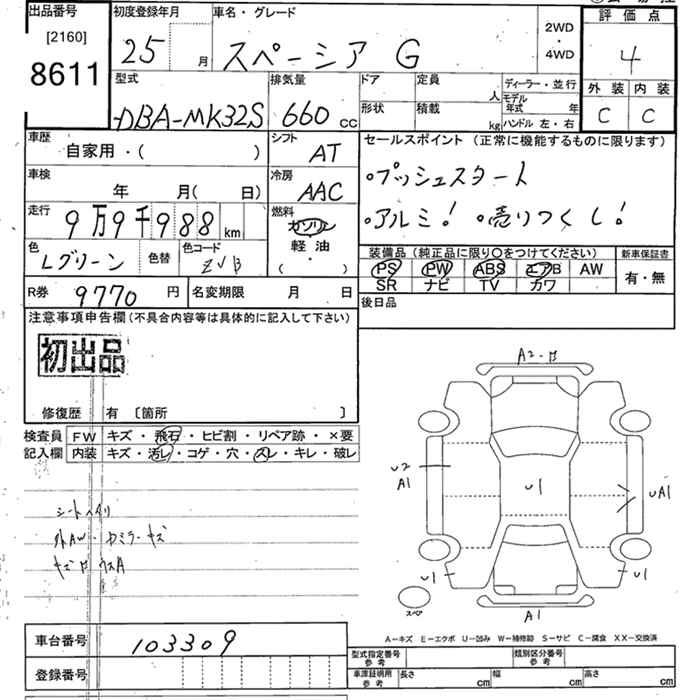 出品番号 初度登録年月 車名・グレード 評価点
[2160] 8611
25 月 スペーシア G 2WD ・ 4WD 4
外装 内装
C C
型式 排気量 ドア 定員 人 ディーラー・並行
DBA-MK32S 660 CC 形状 積載 kg モデル年式 年 ハンドル 左・右
車歴 自家用・( ) シフト AT
車検 年 月( 日) 冷房 AAC
走行 9万9千988 km 燃料 ガソリン 軽油 ( ・ )
色 Lグリーン 色替 色コード ZVB
R券 9770 円 名変期限 月 日
セールスポイント(正常に機能するものに限ります)
・プッシュスタート
・アルミ! ・売りつくし!
装備品(純正品に限り〇をつけてください) 新車保証書
PS PW ABS エアB AW 有・無
SR ナビ TV カワ
後日品
注意事項申告欄(不具合内容等は具体的に記入して下さい)
初出品
修復歴 有 〔箇所 〕
検査員 FW キズ・飛石・ヒビ割・リペア跡・×要
記入欄 内装 キズ・汚レ・コゲ・穴・スレ・キレ・破レ
A2・
U2
A1
U1
UA1
U1
U1
スペア
A1
A-キズ E-エクボ U-凹み W-補修跡 S-サビ C-腐食 XX-交換済
車台番号 103309
登録番号
型式指定番号 参考 類別区分番号 参考
車庫証明用 参考 長さ cm 幅 cm 高さ cm